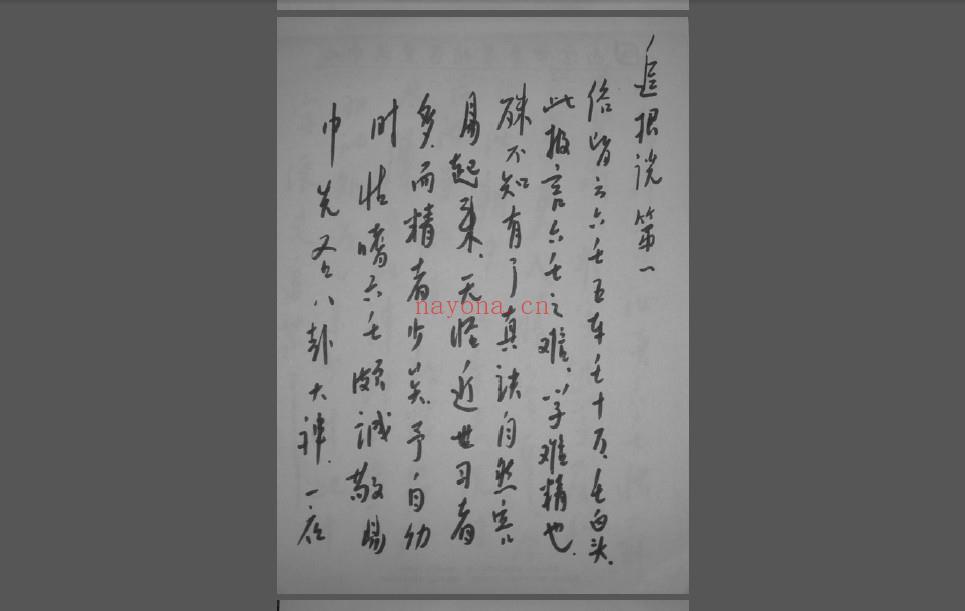 追根说第一
俗皆云六壬五车壬十万.壬白头.
此极言六壬之难.学难精也.
殊不知有了真诀自然容
易起来.无怪近世习者
多而精者少矣.予自幼
时怙嗜六壬颇诚敬赐
巾先 八卦大神.一夜
nayona.cn